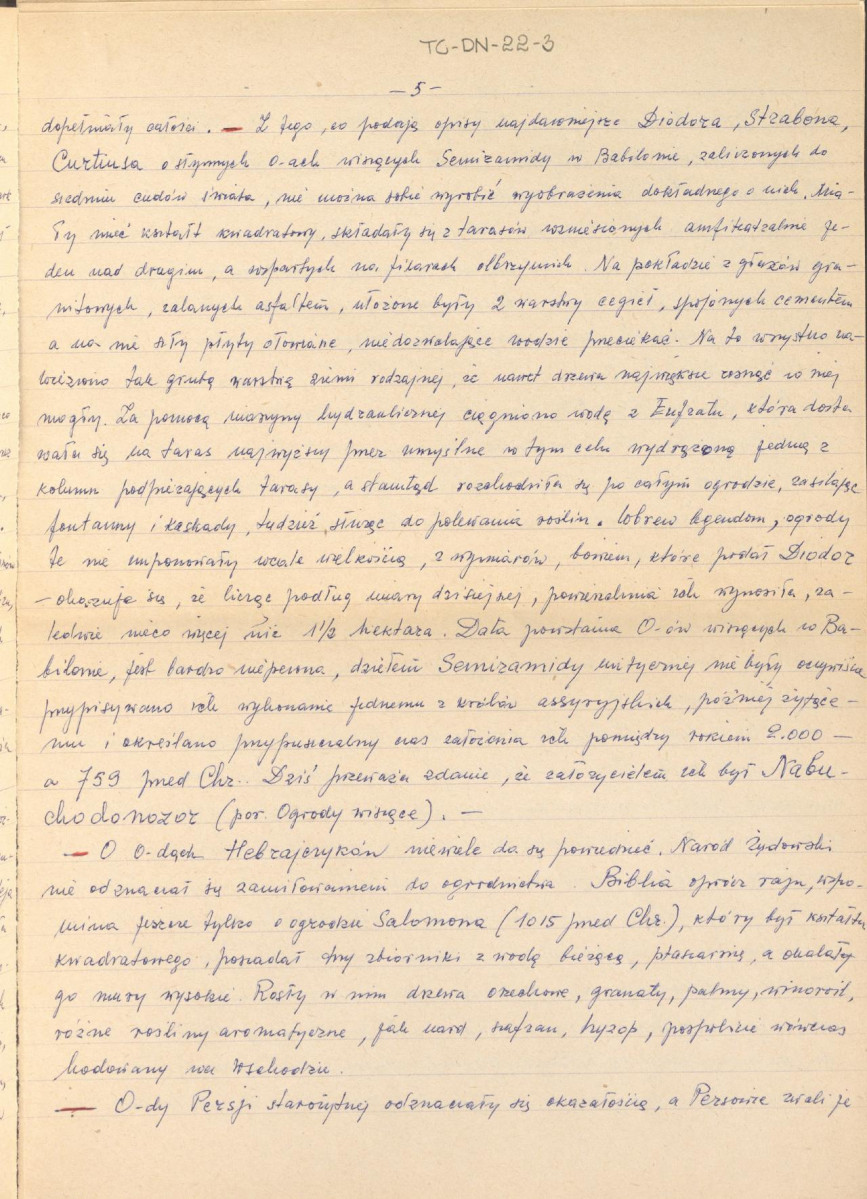 TC-DN-22-3
— 5 —
dopełniały całości. — Z tego, co podają opisy najdawniejsze Diodora, Strabona,
Curtiusa o słynnych O-ach wiszących Semiramidy w Babilonie, zaliczonych do
siedmiu cudów świata, nie można sobie wyrobić wyobrażenia dokładnego o nich. Mia-
ły mieć kształt kwadratowy, składały się z tarasów wzniesionych amfiteatralnie je-
den nad drugim, a wspartych na filarach olbrzymich. Na pokładzie z głazów gra-
nitowych, zalanych asfaltem, ułożone były 2 warstwy cegieł, spojonych cementem
a na nie szły płyty ołowiane, niedozwalające wodzie przeciekać. Na to wszystko na-
wieziono tak grubą warstwę ziemi rodzajnej, że nawet drzewa największe rosnąć w niej
mogły. Za pomocą maszyny hydraulicznej ciągniono wodę z Eufratu, która dosta
wała się na taras najwyższy przez umyślnie w tym celu wydrążoną jedną z
kolumn podpierających tarasy, a stamtąd rozchodziła się po całym ogrodzie, zasilając
fontanny i kaskady, tudzież służąc do polewania roślin. Wbrew legendom, ogrody
te nie imponowały wcale wielkością, z wymiarów, bowiem, które podał Diodor
— okazuje się, że licząc podług miary dzisiejszej, powierzchnia ich wynosiła, za-
ledwie nieco więcej niż 1 1/2 hektara. Data powstania O-ów wiszących w Ba-
bilonie, jest bardzo niepewna, dziełem Semiramidy mitycznej nie były oczywiście
przypisywano ich wykonanie jednemu z królów assyryjskich, później żyjące-
mu i określano przypuszczalny czas założenia ich pomiędzy rokiem 2.000 —
a 759 przed Chr.. Dziś przeważa zdanie, że założycielem ich był Nabu-
chodonozor (por. Ogrody wiszące). —
— O O-dach Hebrajczyków niewiele da się powiedzieć. Naród Żydowski
nie odznaczał się zamiłowaniem do ogrodnictwa. Biblia oprócz raju, wspo-
mina jeszcze tylko o ogrodzie Salomona (1015 przed Chr.), który był kształtu
kwadratowego, posiadał trzy zbiorniki z wodą bieżącą, ptaszarnię, a okalały
go mury wysokie. Rosły w nim drzewa orzechowe, granaty, palmy, winorośl,
różne rośliny aromatyczne, jak nard, szafran, hyzop, pospolicie wówczas
hodowany na Wschodzie.
— O-dy Persji starożytnej odznaczały się okazałością, a Persowie zwali je